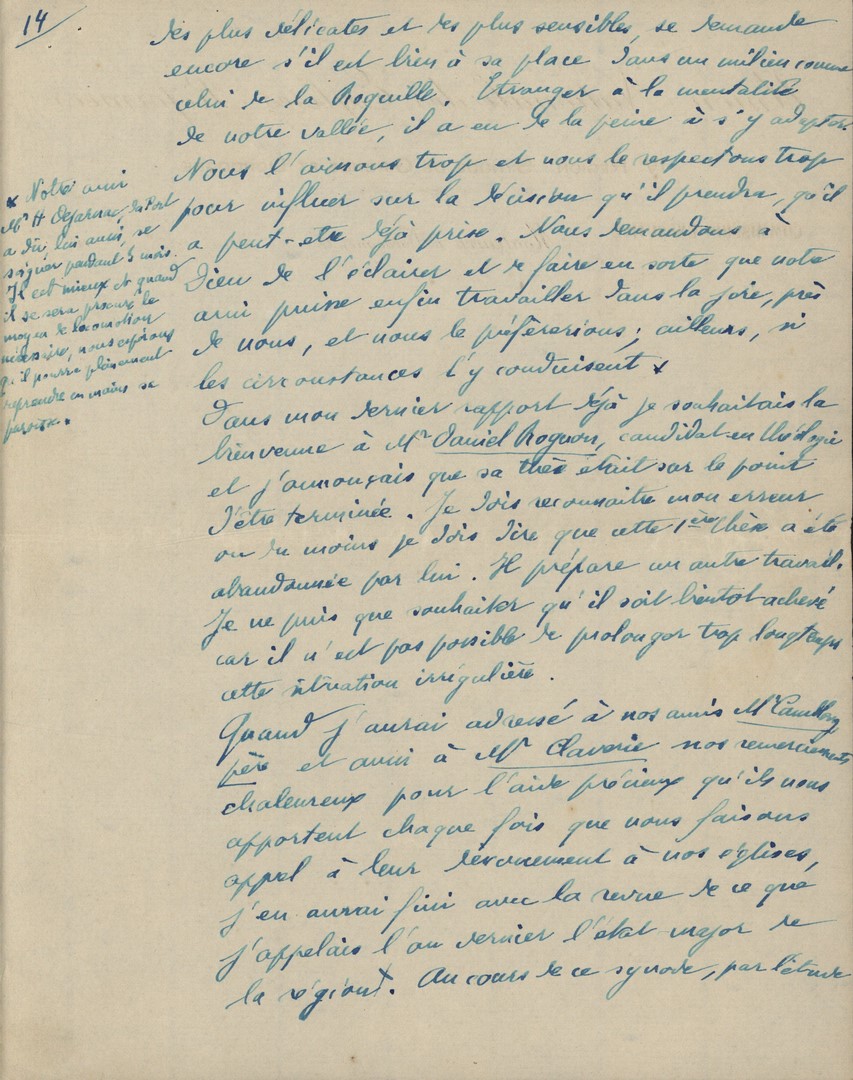 14/
des plus délicates et des plus sensibles, se demande
encore s'il est bien à sa place dans un milieu comme
celui de la Roquille. Etranger à la mentalité
de notre vallée, il a eu de la peine à s'y adapter.
Nous l'aimons trop et nous le respectons trop
pour influer sur la décision qu'il prendra, qu'il
a peut-etre déjà prise. Nous demandons à
Dieu de l'éclairer et de faire en sorte que notre
ami puisse enfin travailler dans la joie, près
de nous, et nous le préfèrerions; ailleurs, si
les circonstances l'y conduisent x
x Notre ami
Mr H Dejarnac, du Port
a dû lui aussi, se
soigner pendant 5 mois.
Il est mieux et quand
il se sera procuré le
moyen de locomotion
nécessaire, nous espérons
qu'il pourra pleinement
reprendre en mains sa
paroisse.
Dans mon dernier rapport déjà je souhaitais la
bienvenue à Mr Daniel Roquon, candidat en théologie
et j'annonçais que sa thèse était sur le point
d'être terminée. Je dois reconnaitre mon erreur
ou du moins je dois dire que cette 1ère thèse a été
abandonnée par lui. Il prépare un autre travail.
Je ne puis que souhaiter qu'il soit bientot achevé
car il n'est pas possible de prolonger trop longtemps
cette situation irrégulière.
Quand j'aurai adressé à nos amis Mr
père et aussi à Mr Claverie nos remerciements
chaleureux pour l'aide précieux qu'ils nous
apportent chaque fois que nous faisons
appel à leur dévouement à nos églises,
j'en aurai fini avec la revue de ce que
j'appelais l'an dernier l'état major de
la région x. Au cours de ce synode, par l'étude